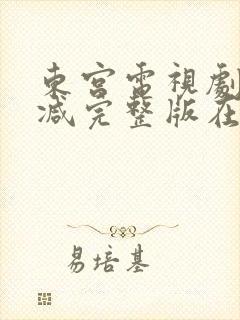 東宮電視劇
減完整版在
易培基